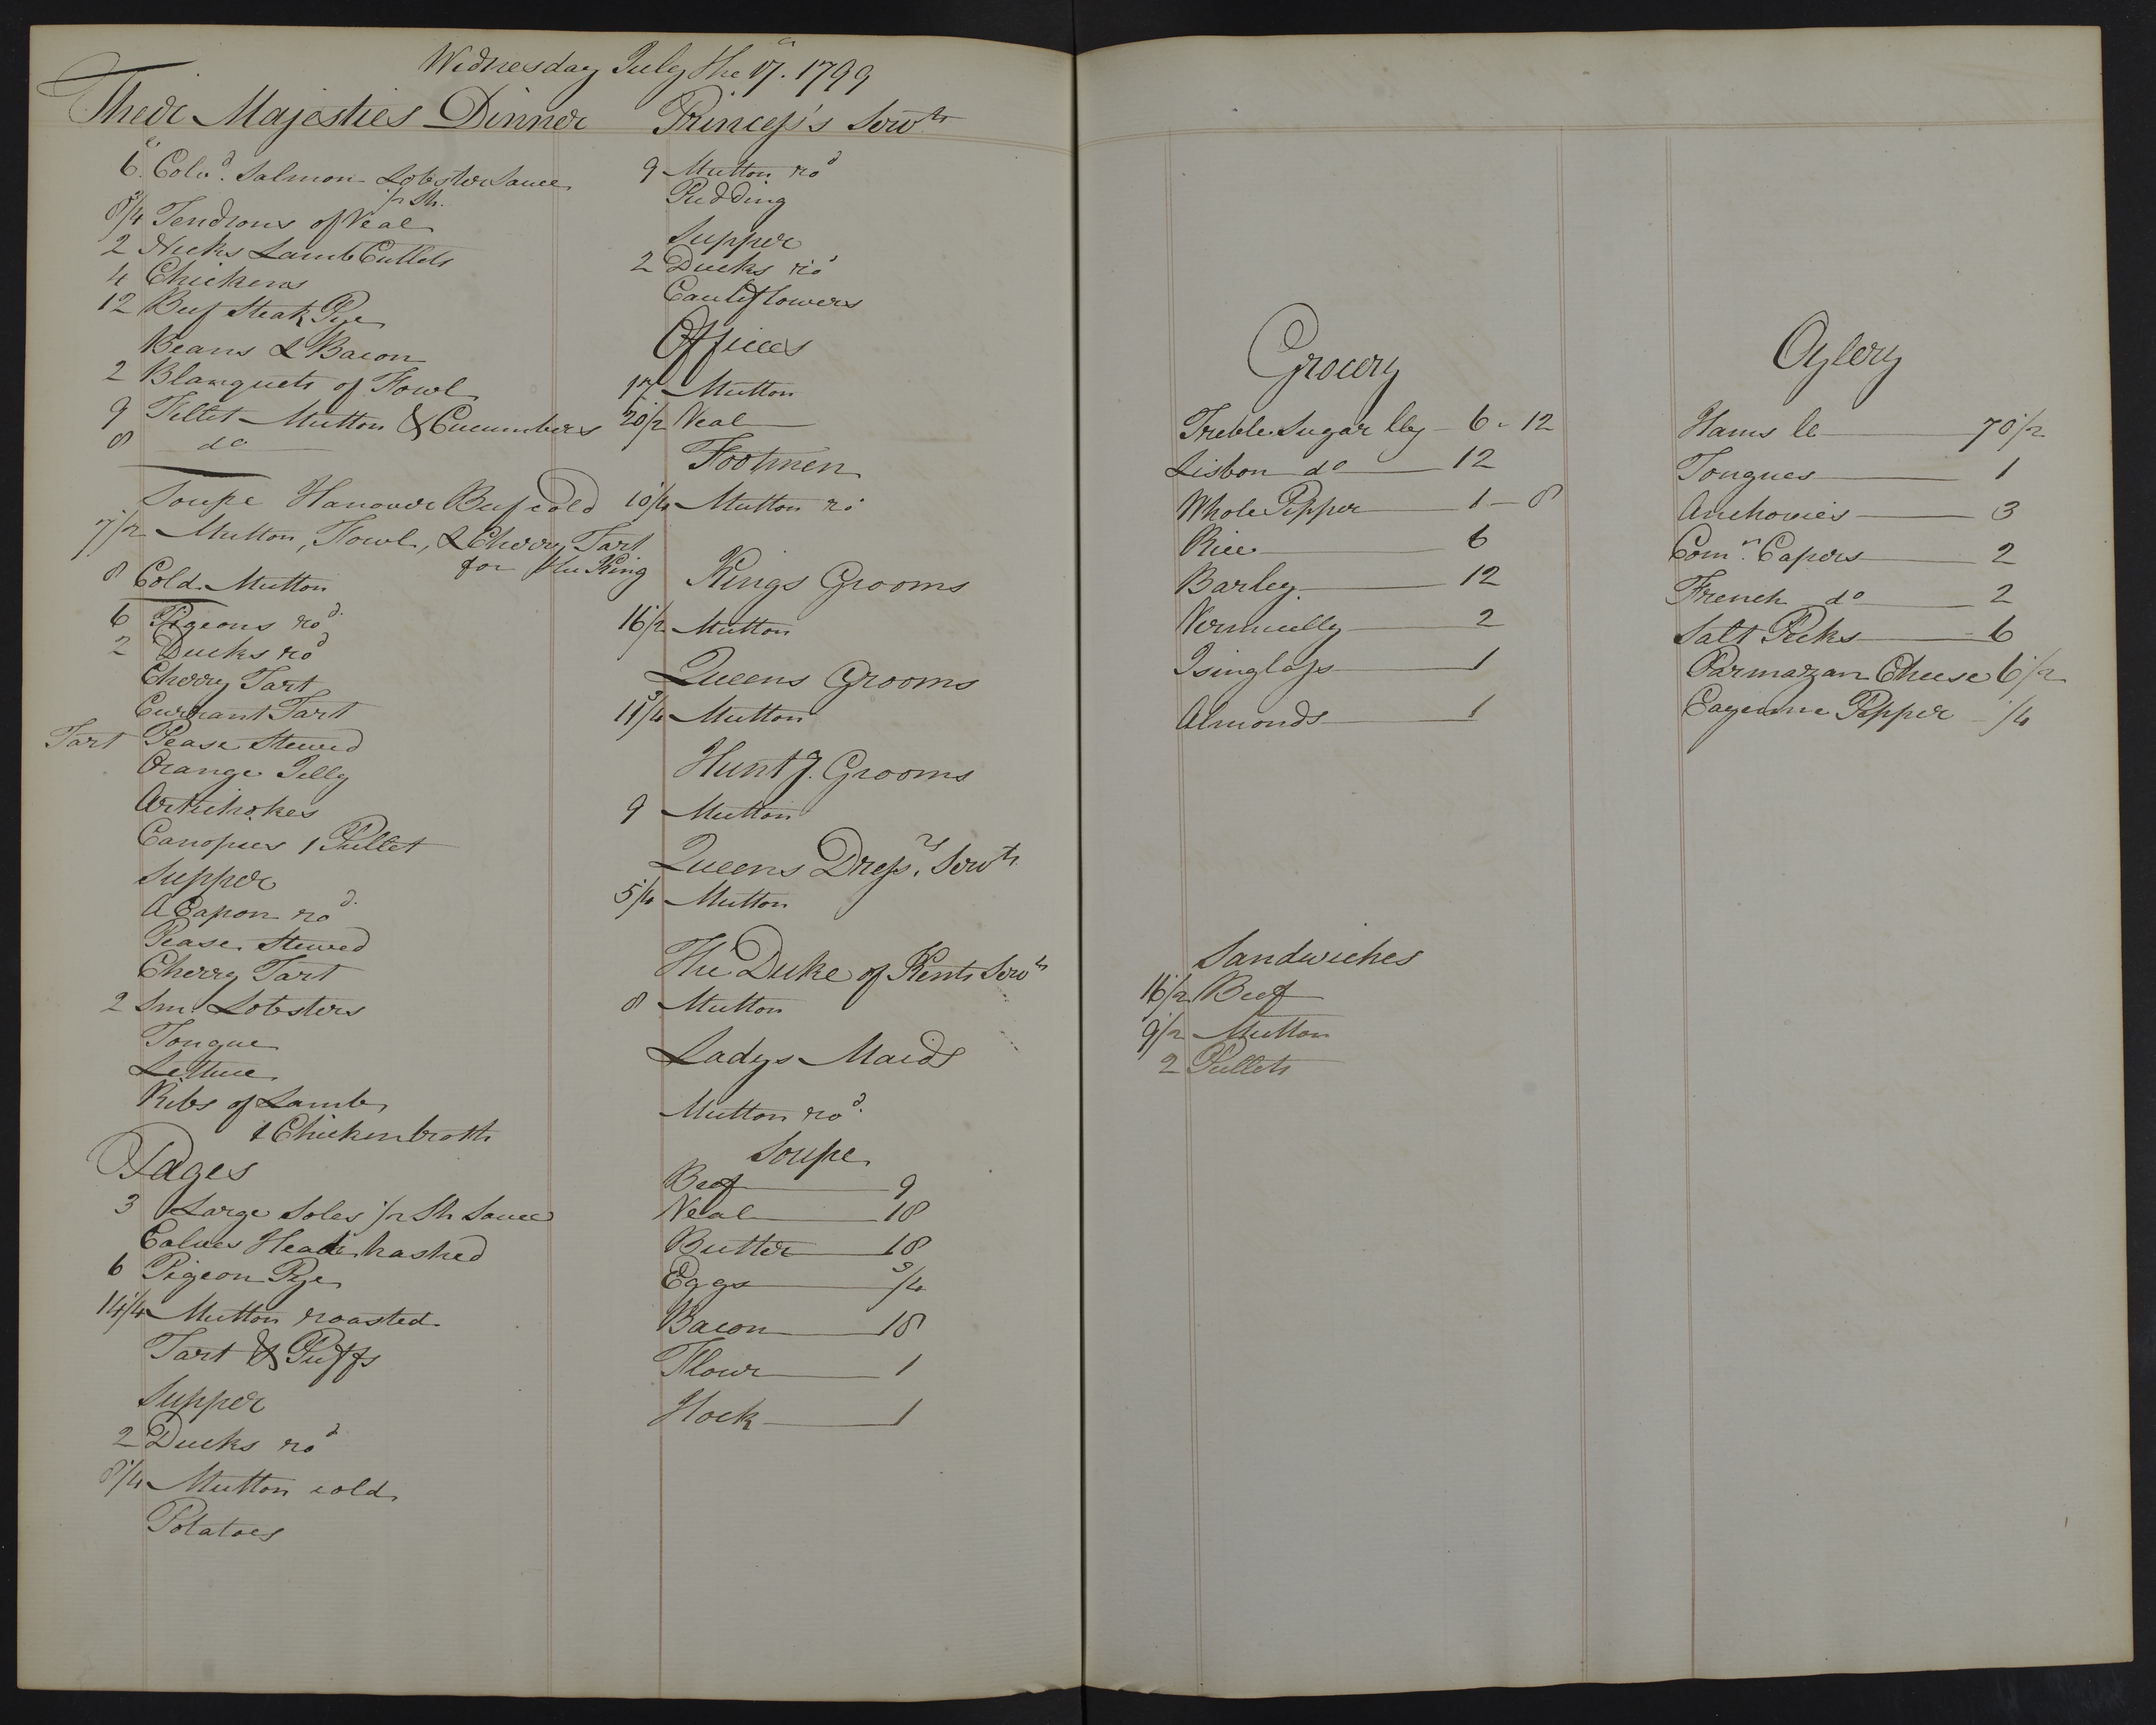 Wednesday July the 17. 1799
Their Majesties Dinner
6 Colrd. Salmon Lobster Sauce
1/2 Sh.
8 3/4 Tendrons of Veal
2 Necks Lamb Cutlets
4 Chickens
12 Beef Steak Pye
Beans & Bacon
2 Blanquets of Fowl
9 Fillet Mutton & Cucumbers
8 do
Soupe Hanover Beef cold
7 1/2 Mutton, Fowl, & Cherry Tart
for the King
8 Cold Mutton
6 Pigeons rod.
2 Ducks rod
Cherry Tart
Currant Tart
Tart Pease Stewed
Orange Jelly
Artichokes
Canopies 1 Pullet
Supper
A Capon rod.
Pease Stewed
Cherry Tart
2 Sm. Lobsters
Tongue
Lettuce
Ribs of Lamb
1 Chicken broth
Pages
3 Large Soles 1/2 Sh Sauce
Calves Head hashed
6 Pigeon Pye
14 1/4 Mutton roasted
Tart & Puffs
Supper
2 Ducks rod
8 1/4 Mutton cold
Potatoes
Princess's Servts
9 Mutton rod
Pudding
Supper
2 Ducks rod
Cauliflowers
Offices
17 Mutton
20 1/2 Veal
Footmen
10 1/4 Mutton ro
Kings Grooms
16 1/2 Mutton
Queens Grooms
11 3/4 Mutton
Huntg. Grooms
9 Mutton
Queens Dressrs. Servts
5 1/4 Mutton
The Duke of Kents Servts
8 Mutton
Ladys Maids
Mutton rod.
Soupe
Beef 9
Veal 18
Butter 18
Eggs 3/4
Bacon 18
Flour 1
Hock 1
Grocery
Treble Sugar lbs 6 - 12
Lisbon do 12
Whole Pepper 1 - 8
Rice 6
Barley 12
Vermicelly 2
Isinglass 1
Almonds 1
Sandwiches
16 1/2 Beef
9 1/2 Mutton
2 Pullets
Oylery
Hams lb 70 1/2
Tongues 1
Anchovies 3
Comn. Capers 2
French do 2
Salt Pecks 6
Parmazan Cheese 6 1/2
Cayenne Pepper 1/4